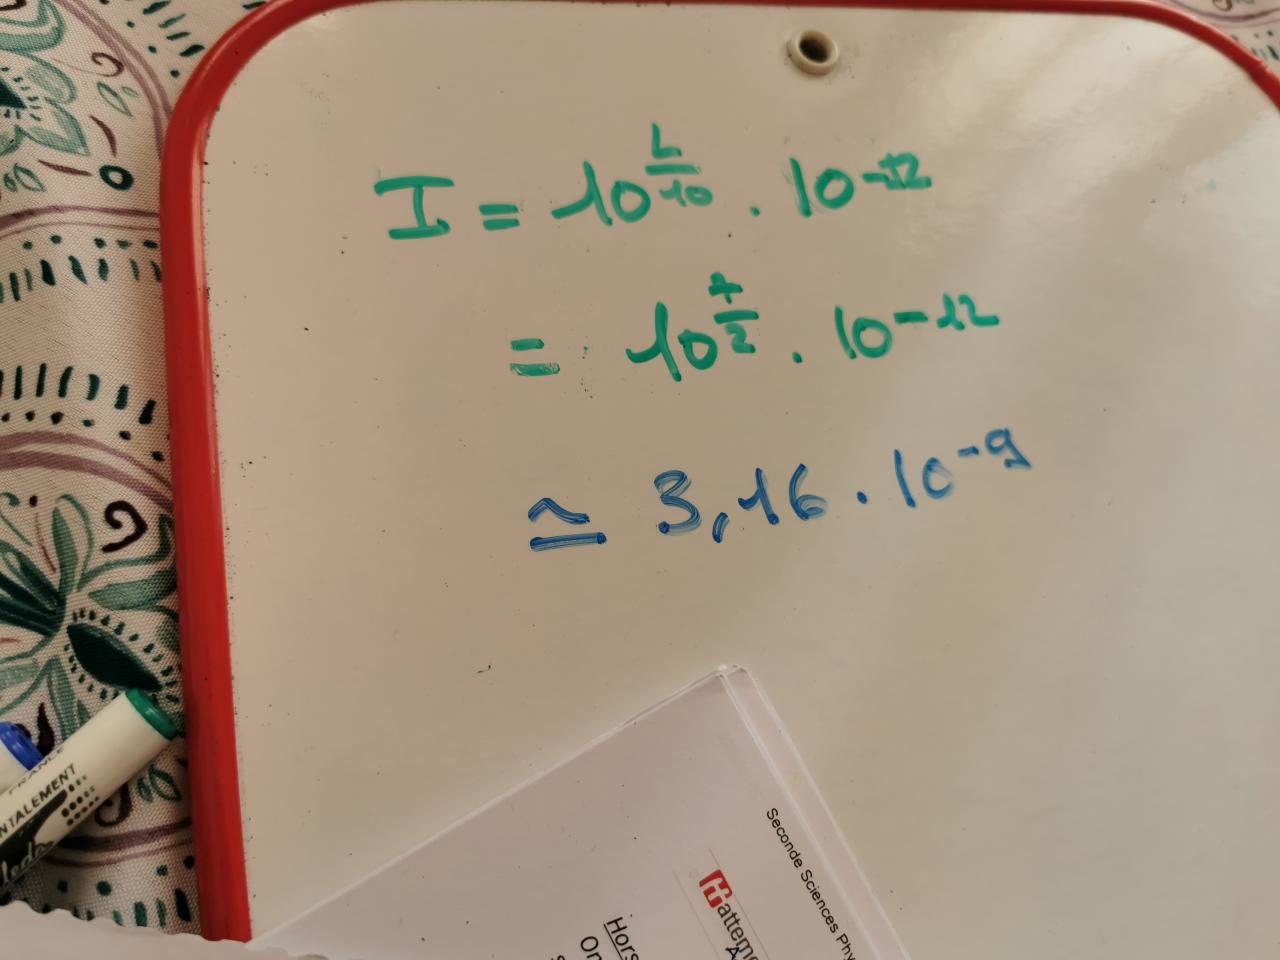 I = 10^{\frac{L}{10}} . 10^{-12}
= 10^{\frac{7}{2}} . 10^{-12}
≃ 3,16 . 10^{-9}
FRANCE
Seconde Sciences Phy
Hattem
Hors
On